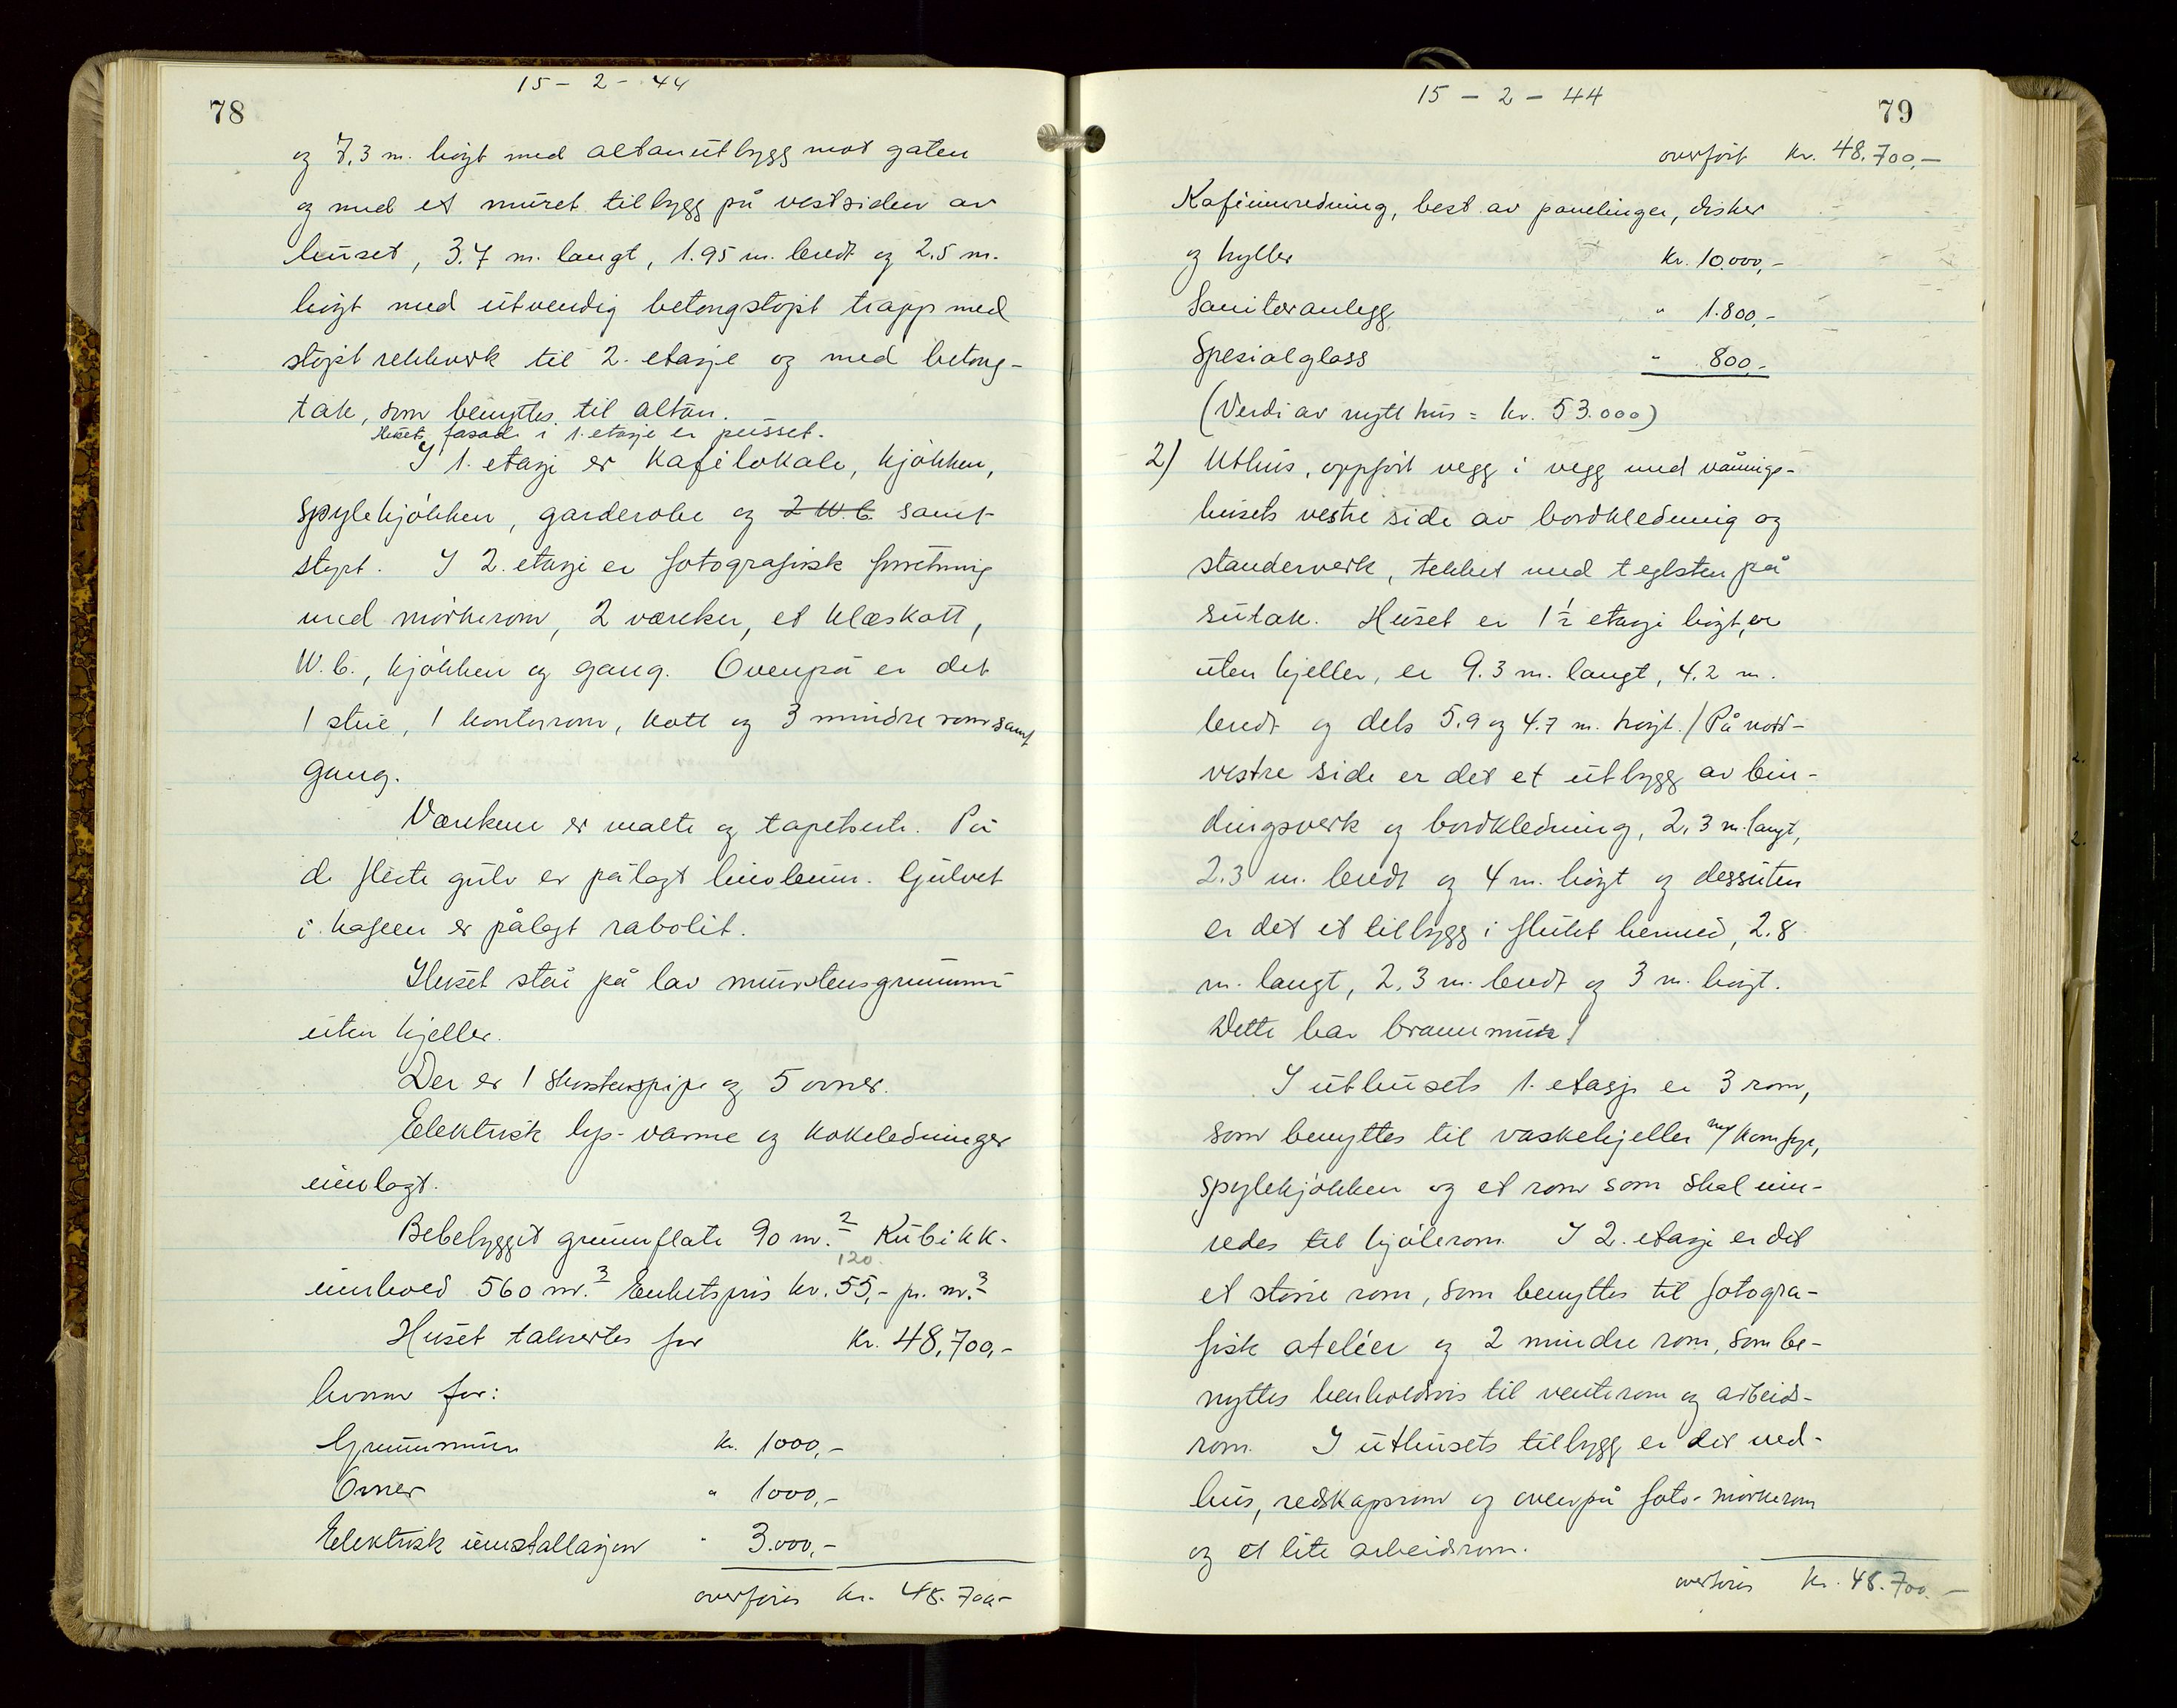 78
15 - 2 - 44
og 7,3 m. høyt med altanutbygg mot gaten
og med et muret tilbygg på vestsiden av
huset, 3.7 m. langt, 1.95 m. bredt og 2.5 m.
høyt med utvendig betongstøpt trapp med
støpt rekkverk til 2. etasje og med betong-
tak, som benyttes til altan.
Husets fasade i 1. etasje er pusset.
I 1. etasje er kafélokale, kjøkken,
spylekjøkken, garderobe og 2 W.C. samt
I 2. etasje er fotografisk forretning
med mørkerom, 2 værelser, et klæskott,
W.C., kjøkken og gang. Ovenpå er det
1 stue, 1 kontorrom, kott og 3 mindre rom samt
gang.
Værelsene er malte og tapetserte. På
de fleste gulv er pålagt linoleum. Gulvet
i kafeen er pålagt rabolit.
Huset står på lav murstensgrunnmur
uten kjeller.
Der er 1 skorstenspipe og 5 ovner.
Elektrisk lys- varme og kokeledninger
innlagt.
Bebebygget grunnflate 90 m.² Kubikk-
120
innhold 560 m.³ Enhetspris kr. 55,- pr. m.³
Huset taksertes for Kr. 48,700,-
hvorav for:
Grunnmur kr. 1000,-
Ovner " 1000,-
Elektrisk innstallasjon " 3.000,-
overføres kr. 48.700,-
15 - 2 - 44
79
overført kr. 48.700,-
Kaféinnredning, best. av panelinger, disker
og hyller kr. 10.000,-
Sanitæranlegg " 1.800,-
Spesialglass " 800,-
(Verdi av nytt hus = kr. 53.000)
2) Uthus, oppført vegg i vegg med vånings-
husets vestre side av bordkledning og
standerverk, tekket med teglsten på
sutak. Huset er 1½ etasje høyt, er
uten kjeller, er 9.3 m. langt, 4.2 m.
bredt og dels 5.9 og 4.7 m. høyt. / På nord-
vestre side er det et utbygg av bin-
dingsverk og bordkledning, 2,3 m. langt,
2.3 m. bredt og 4 m. høyt og dessuten
er det et tilbygg i flukt hermed, 2.8
m. langt, 2,3 m. bredt og 3 m. høyt.
Dette har brannmur /
I uthusets 1. etasje er 3 rom,
som benyttes til vaskekjeller m/ komfyr,
spylekjøkken og et rom som skal inn-
redes til kjølerom. I 2. etasje er det
et større rom, som benyttes til fotogra-
fisk ateliér og 2 mindre rom, som be-
nyttes henholdsvis til venterom og arbeids-
rom. I uthusets tilbygg er det ved-
hus, redskapsrom og ovenpå foto- mørkerom
og et lite arbeidsrom.
overføres kr. 48.700.-